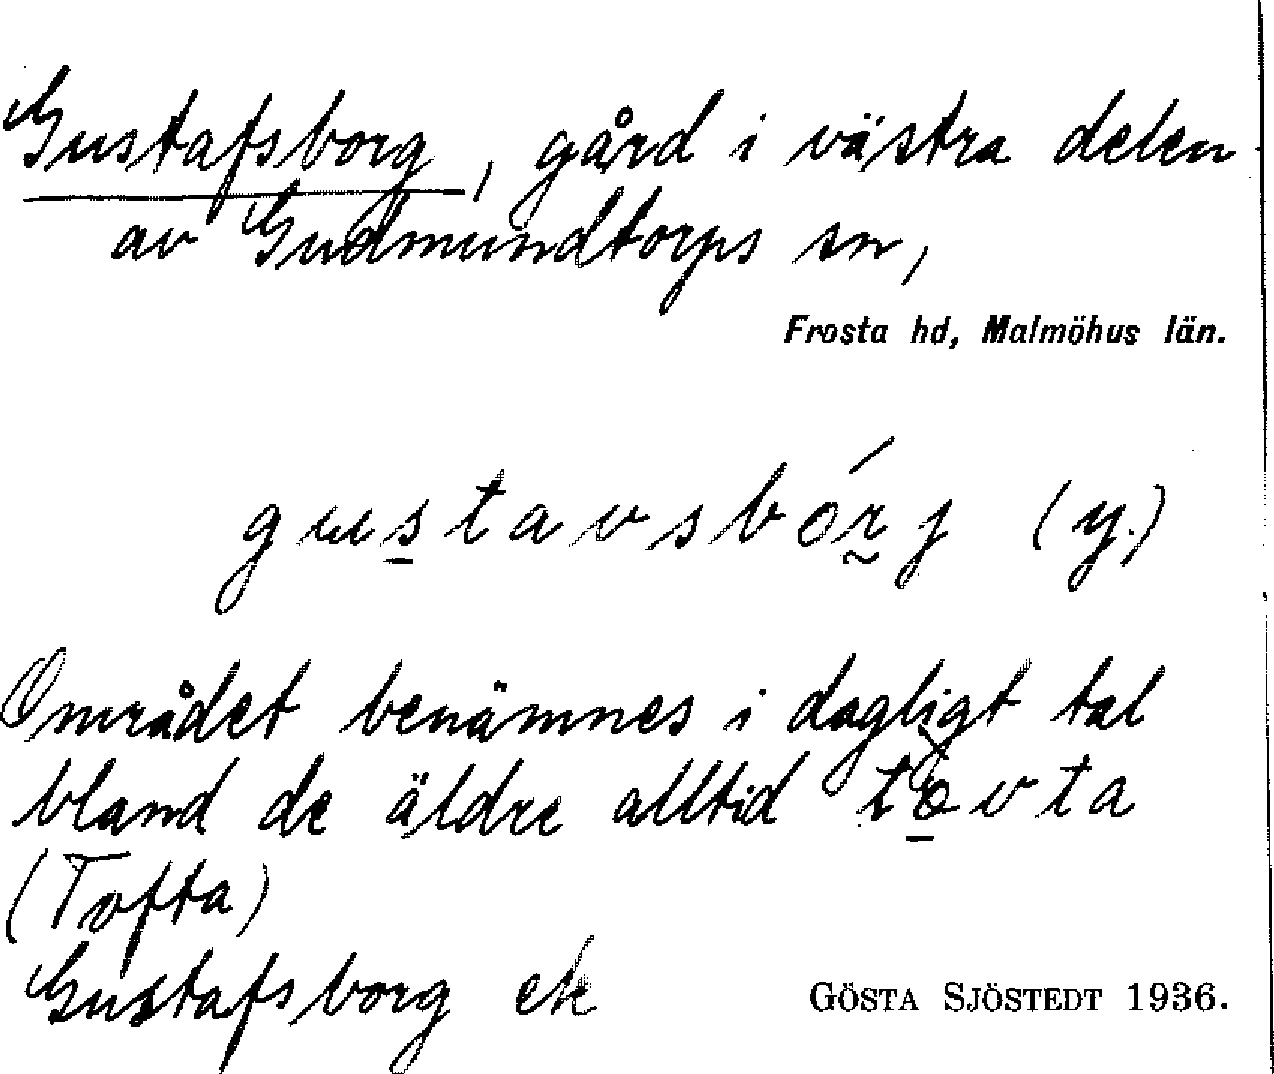 Gustafsborg, gård i västra delen
av Gudmundtorps sn,
Frosta hd, Malmöhus län.
gustavsbórj (y.)
Området benämnes i dagligt tal
bland de äldre alltid tòvta
(Tofta)
Gustafsborg ek
GÖSTA SJÖSTEDT 1936.